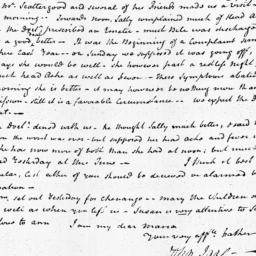 Mr. Scattergood and several of his Friends made us a visit
morning. Towards noon, Sally complained much of Head A
the Doctr. prescribed an Emetic - much Bile was discharged
a good better - It was the Beginning of a Complaint simi
here last Year - on Sunday we supposed it was going off.
says she would be well - She however past a restless night
much head Ache as well as Fever - these Symptoms abated
morning she is better - it may however be nothing more than
still it is a favorable Circumstance - We expect the D
Doctr. dined with us - he thought Sally much better, &
the worst was over - but supposed her head ache and fever
She has now more of both than she had at noon; but much
Yesterday at this Time - I think it best
lest either of you should be deceived or alarmed b
set out Yesterday for Chenango - Mary the Children
well as when you left us - Susan is very attentive to
Love to Ann I am my dear Maria
Your very affte. Father